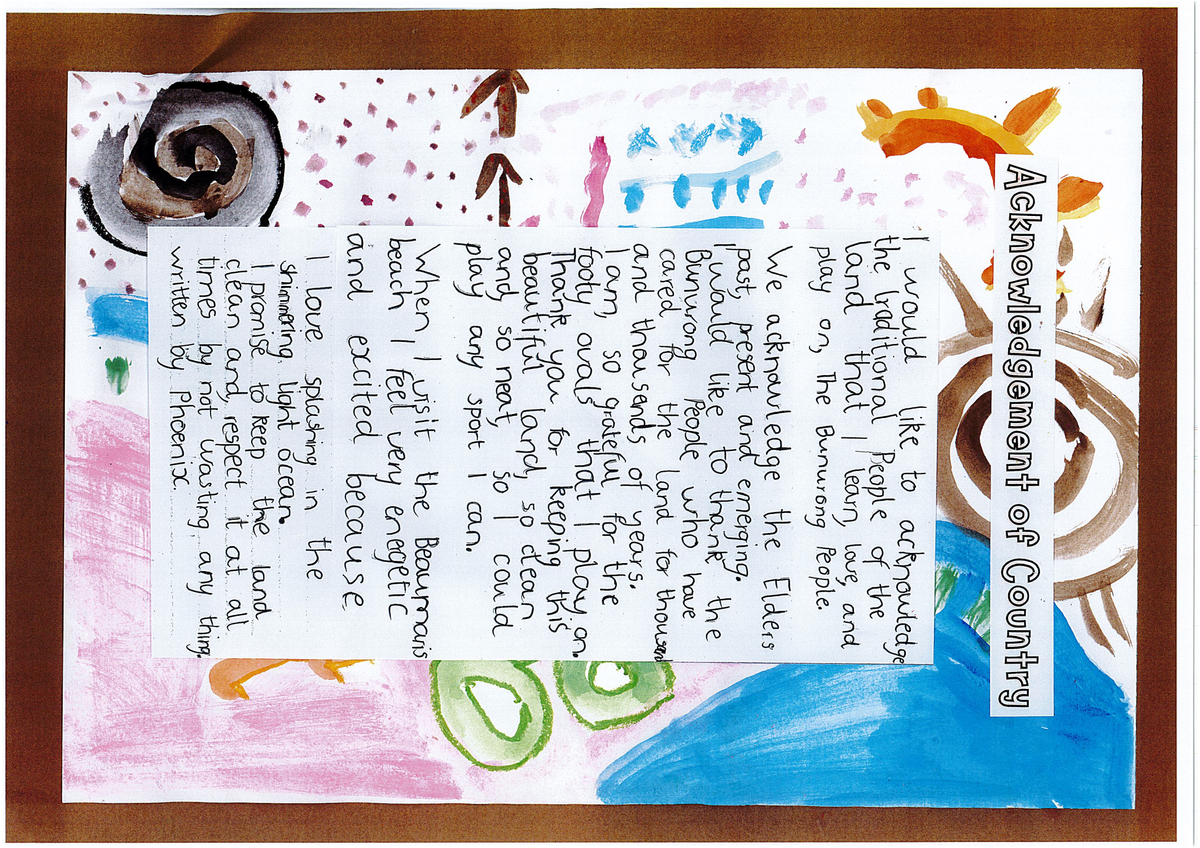 Acknowledgement of Country
I would like to acknowledge
the traditional People of the
land that I learn, love, and
play on, The Bunurong People.
We acknowledge the Elders
past, present and emerging.
I would like to thank the
Bunurong People who have
cared for the land for thousend
and thousends of years.
I am, so grateful for the
footy ovals that I play on.
Thank you for keeping this
beautiful land, so clean
and, so neat, so I could
play any sport I can.
When I visit the Beaumaris
beach I feel very enegetic
and excited because
I love splashing in the
shimmering, light ocean.
I promise to keep the land
clean and, respect it at all
times by not wasting any thing.
written by Phoenix